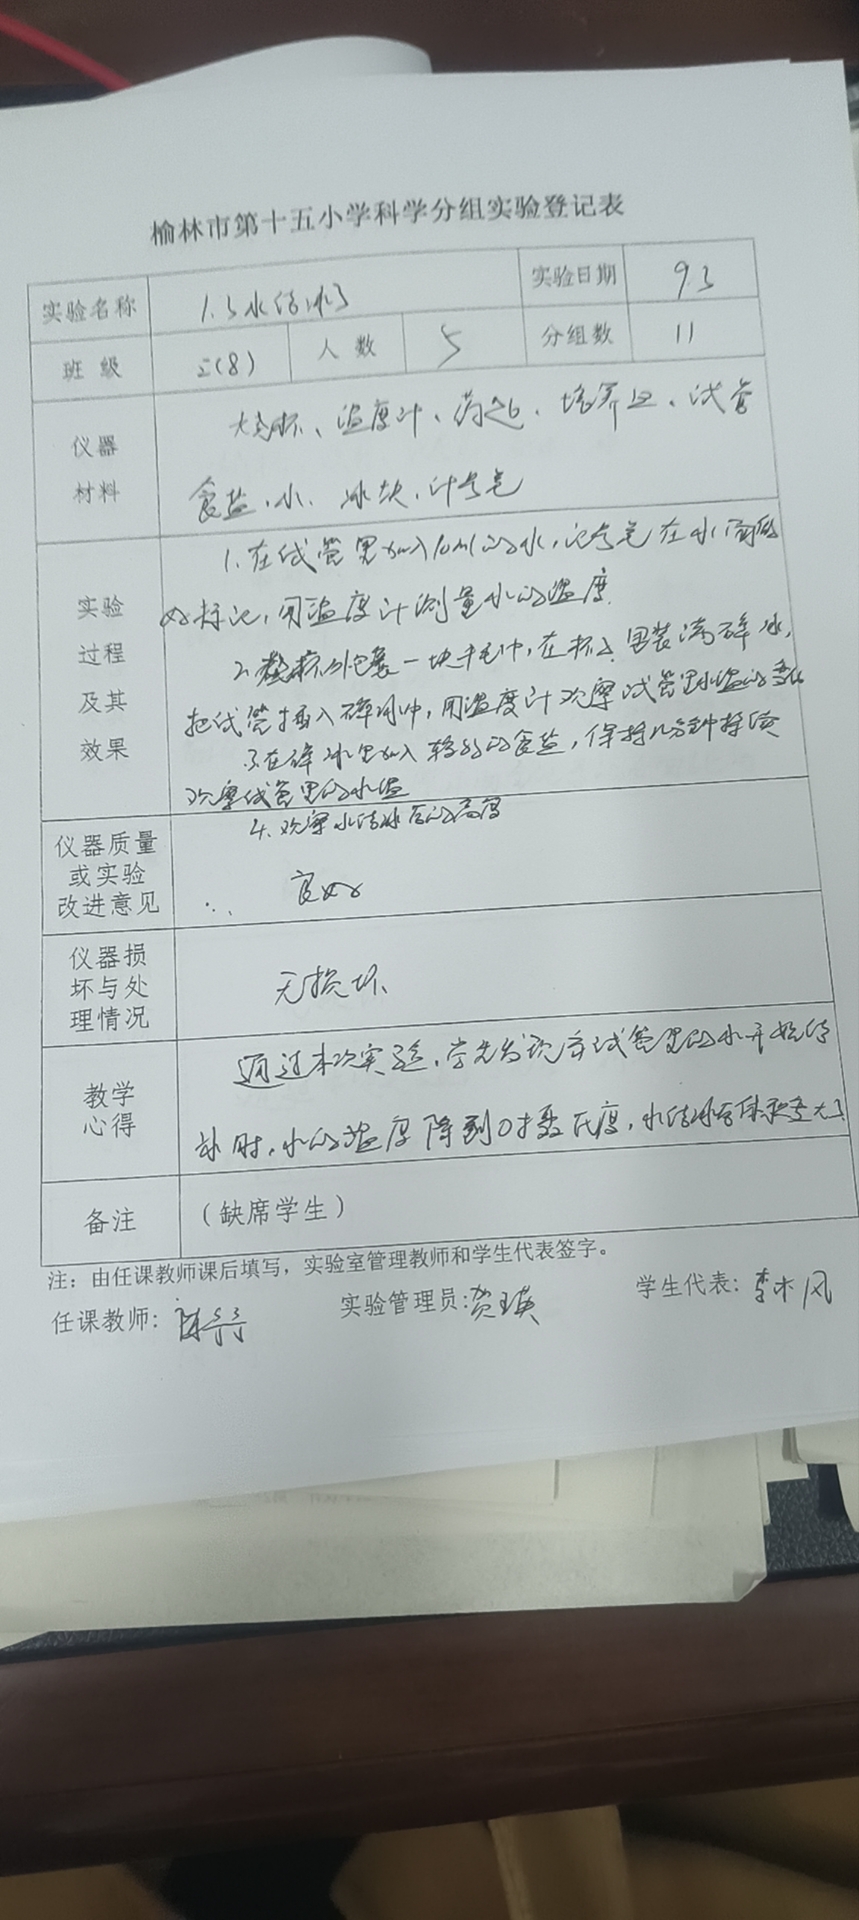 榆林市第十五小学科学分组实验登记表
实验名称 1.3水结冰了 实验日期 9.3
班 级 三(8) 人 数 5 分组数 11
仪器 大烧杯、温度计、药匙、培养皿、试管
材料 食盐、水、冰块、计号笔
实验 1.在试管里加入10ml的水,记号笔在水面做
好标记,用温度计测量水的温度
过程 外包裹一块干毛巾,在杯 里装满碎冰,
及其 把试管插入碎冰中,用温度计观察试管里水温的变化
效果 3.在碎冰里加入较多的食盐,保持几分钟持续
观察试管里的水温
4.观察水结冰后的高度
仪器质量
或实验
改进意见 良好
仪器损
坏与处
理情况 无损坏
教学 通过本次实验,学生发现 试管里的水开始结
心得 冰时,水的温度降到0摄氏度,水结冰后体积变大了
备注 (缺席学生)
注:由任课教师课后填写,实验室管理教师和学生代表签字。
任课教师: 实验管理员:贺瑛 学生代表:李木风